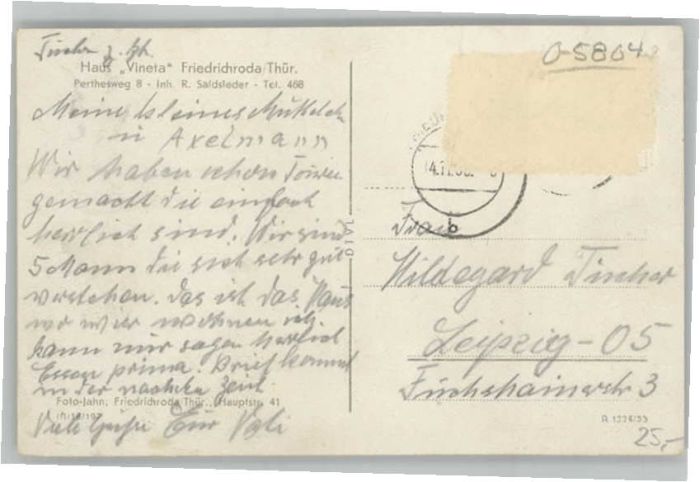 Fischer z. Zt.
Haus „Vineta“ Friedrichroda Thür.
Perthesweg 8 - Inh. R. Saldsieder - Tel. 468
Meine kleines
u Axelmann
Wir haben schon Touren
gemacht die einfach
herrlich sind. Wir sind
5 Mann die sich sehr gut
verstehen. Das ist das Haus
wo wier wohnen ich
kann nur sagen herrlich
Essen prima. Brief kommt
in der nächsten Zeit.
Foto-Jahn, Friedrichroda Thür., Hauptstr. 41
Viele Grüße Eur Vati
O-5804
b
Frau
Hildegard Fischer
Leipzig-O5
Fuchshainerstr 3
25,-